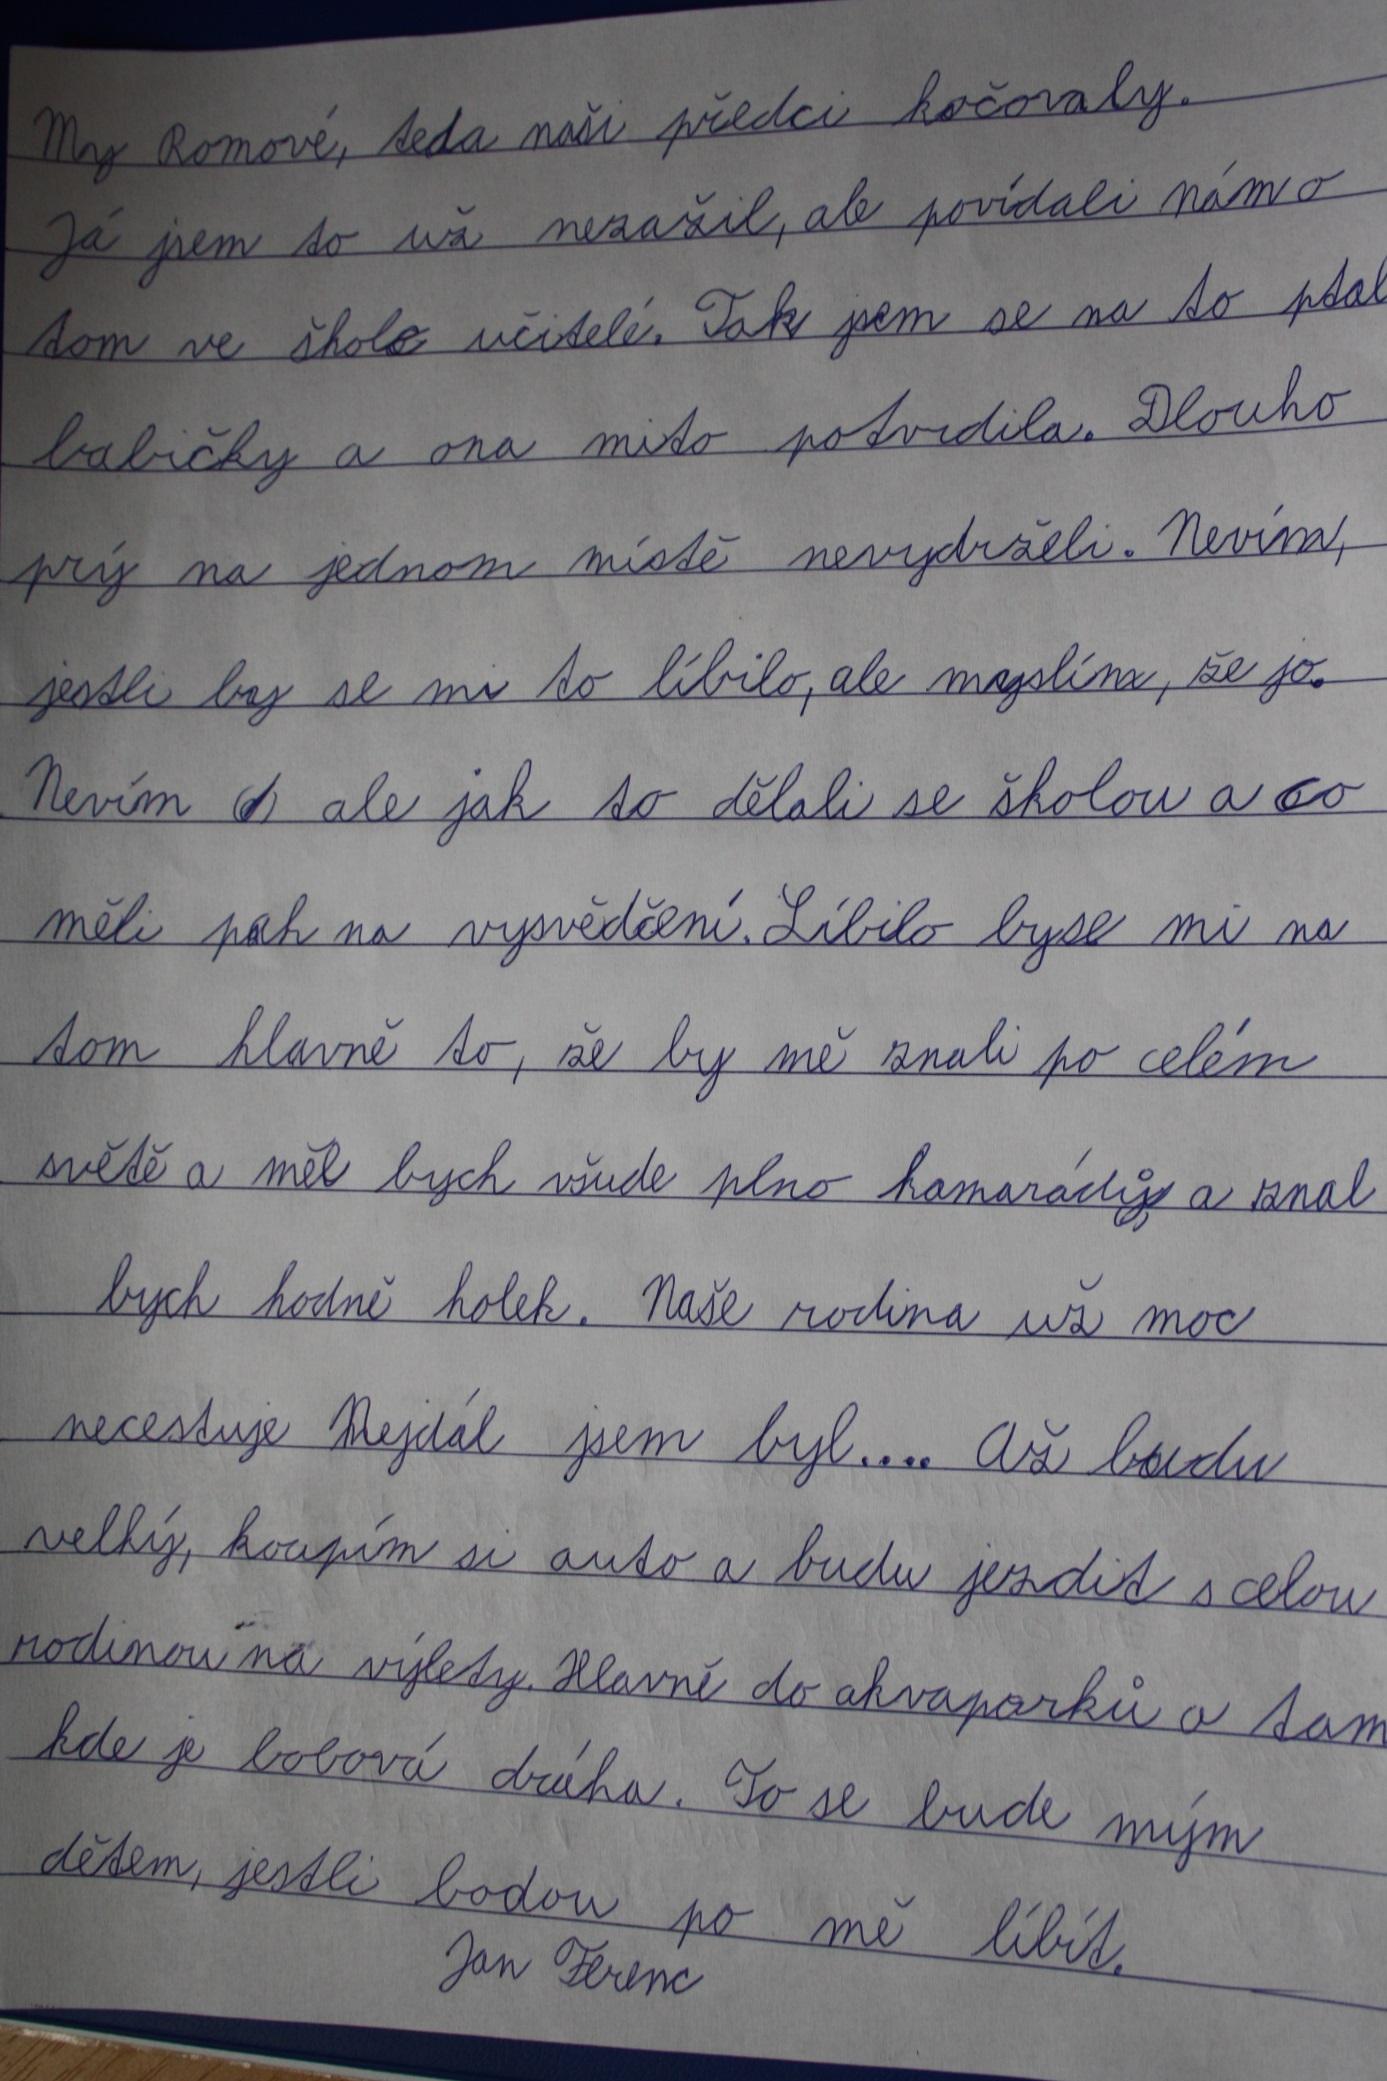 My Romové, teda naši předci kočovaly.
Já jsem to už nezažil, ale povídali námo
tom ve škole učitelé. Tak jsem se na to ptal
babičky a ona mito potvrdila. Dlouho
prý na jednom místě nevydrželi. Nevím,
jestli by se mi to líbilo, ale myslím, že jo.
Nevím ale jak to dělali se školou a co
měli pak na vysvědčení. Líbilo byse mi na
tom hlavně to, že by mě znali po celém
světě a měl bych všude plno kamarádů, a znal
bych hodně holek. Naše rodina už moc
necestuje Nejdál jsem byl.... Až budu
velký, koupím si auto a budu jezdit s celou
rodinou na výlety. Hlavně do akvaparků a tam
kde je bobová dráha. To se bude mým
dětem, jestli bodou po mě líbít.
Jan Ferenc